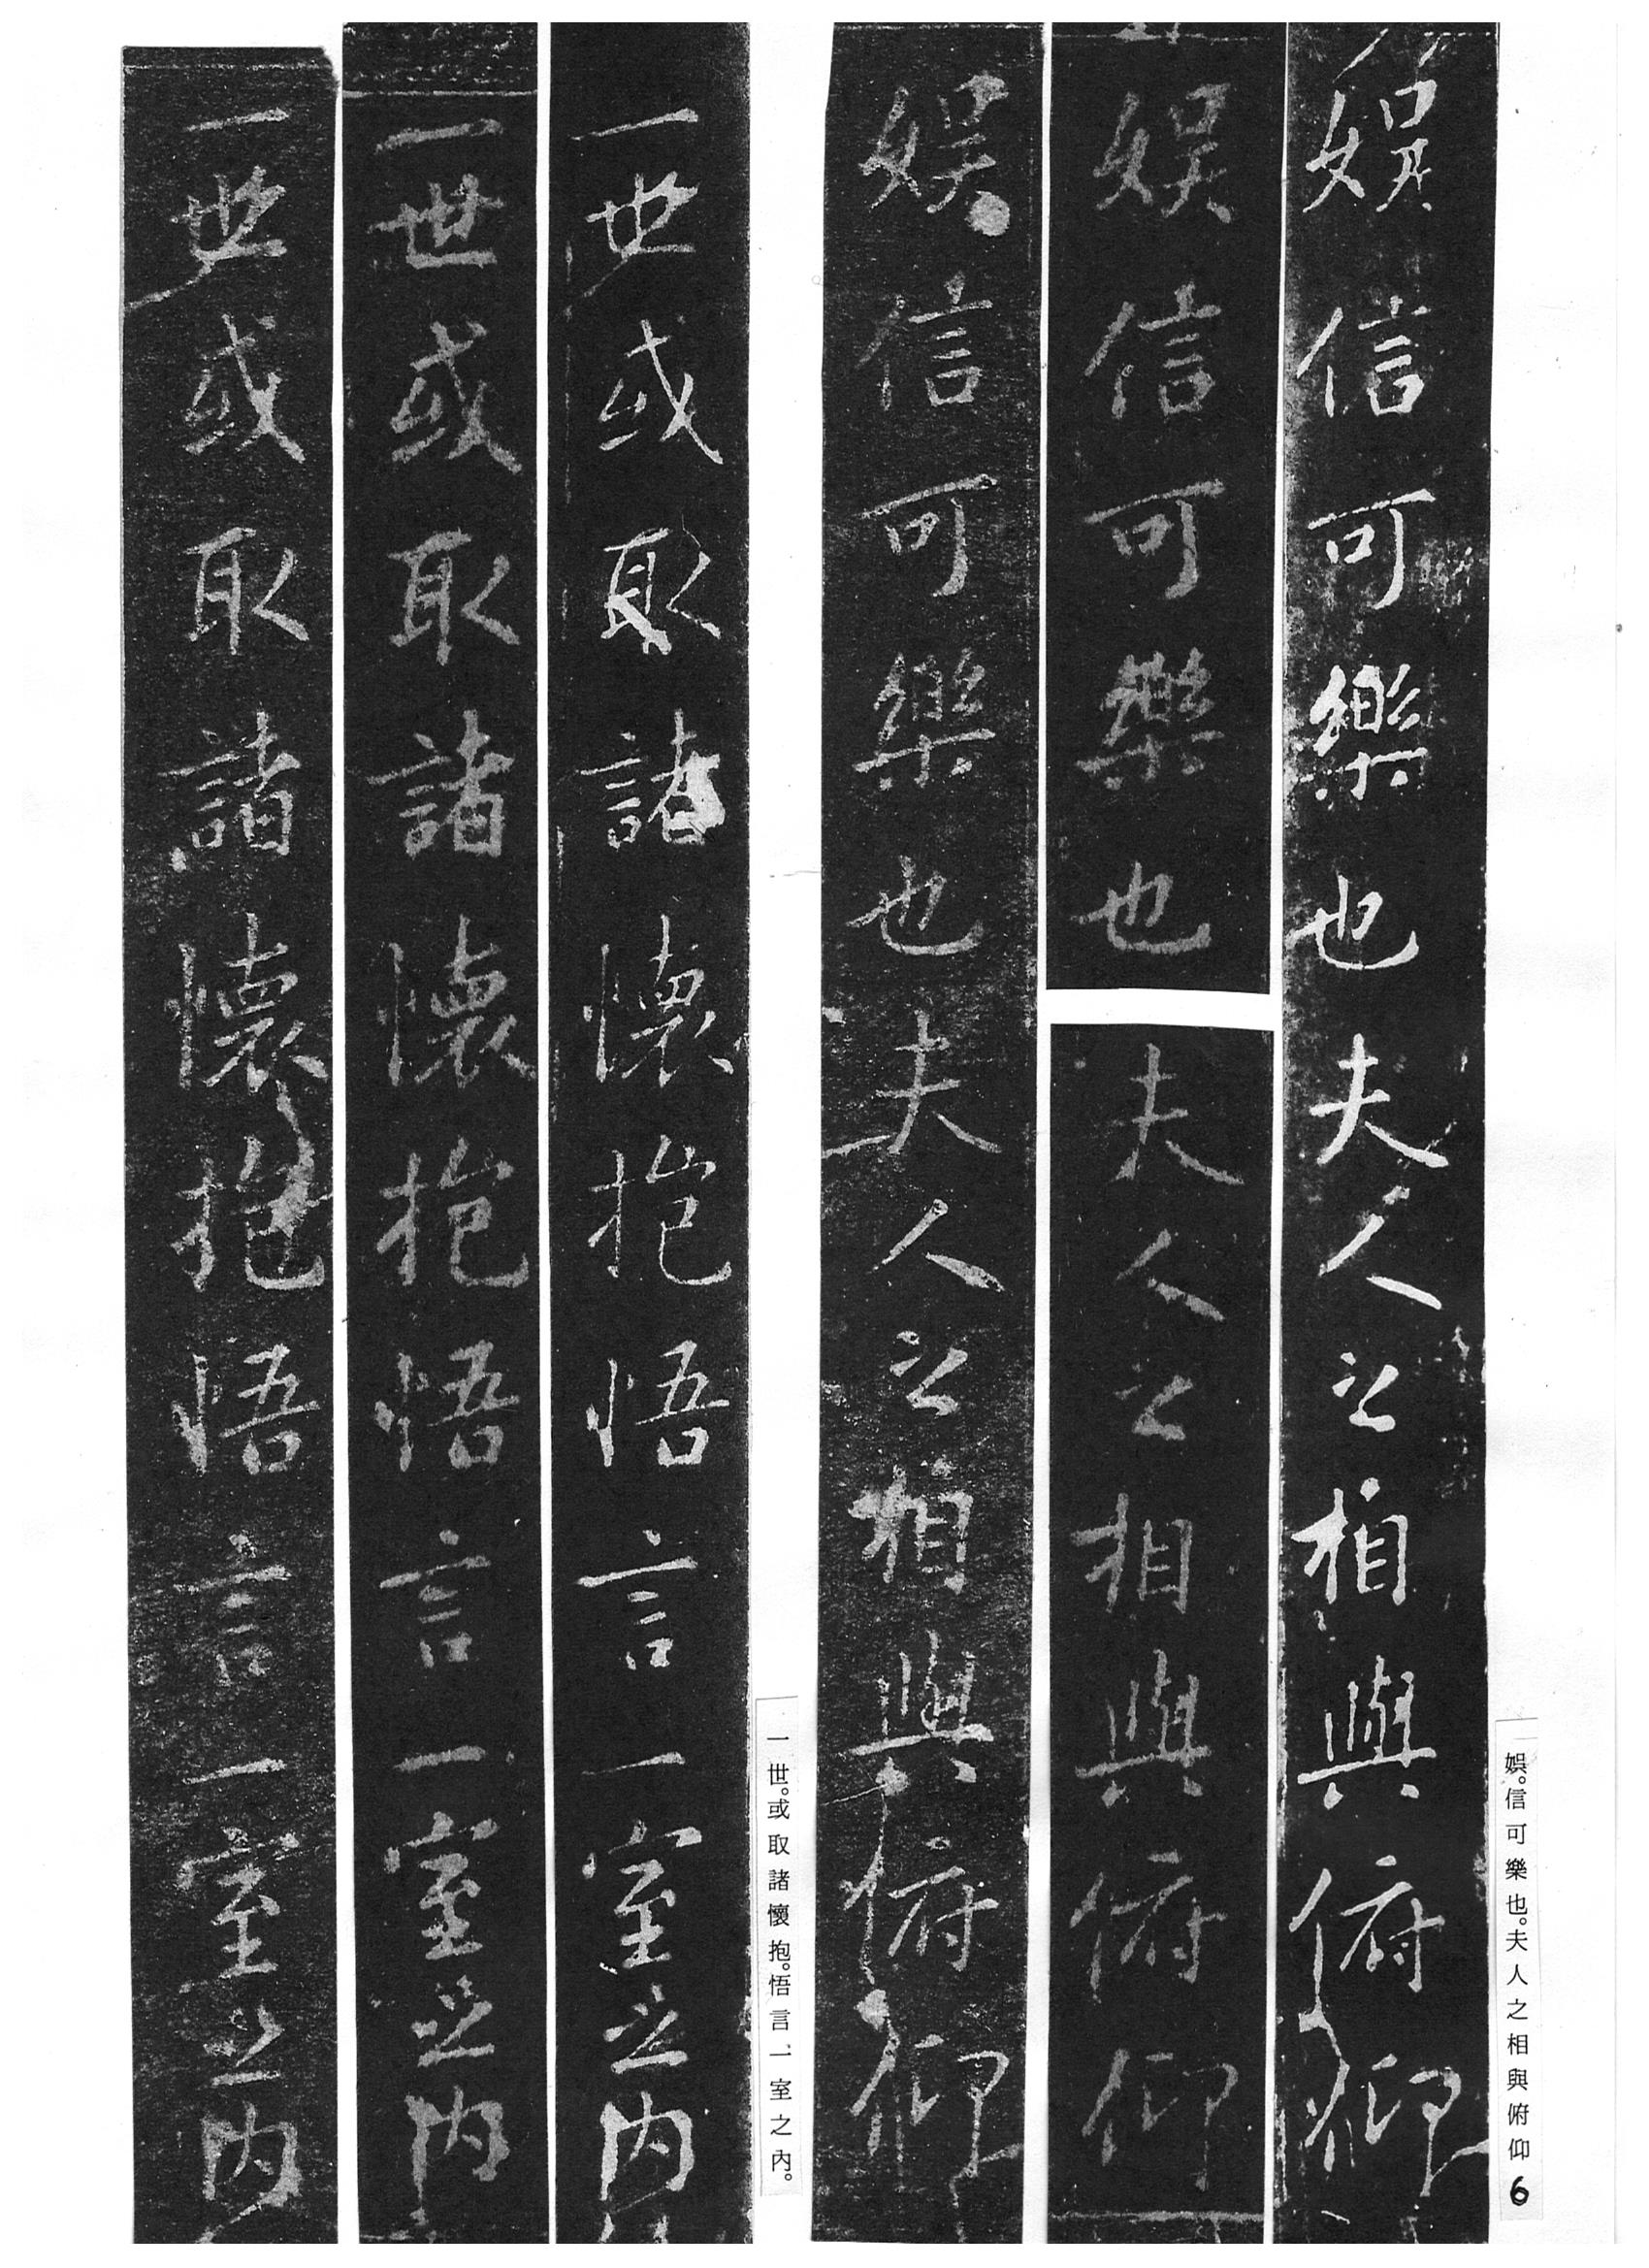 娯。信可樂也。夫人之相與俯仰
6
娯信可樂也夫人之相與俯仰
娯信可樂也
夫人之相與俯仰
娯信可樂也夫人之相與俯仰
一世。或取諸懷抱。悟言一室之內。
一世或取諸懷抱悟言一室之內
一世或取諸懷抱悟言一室之內
一世或取諸懷抱悟言一室之內